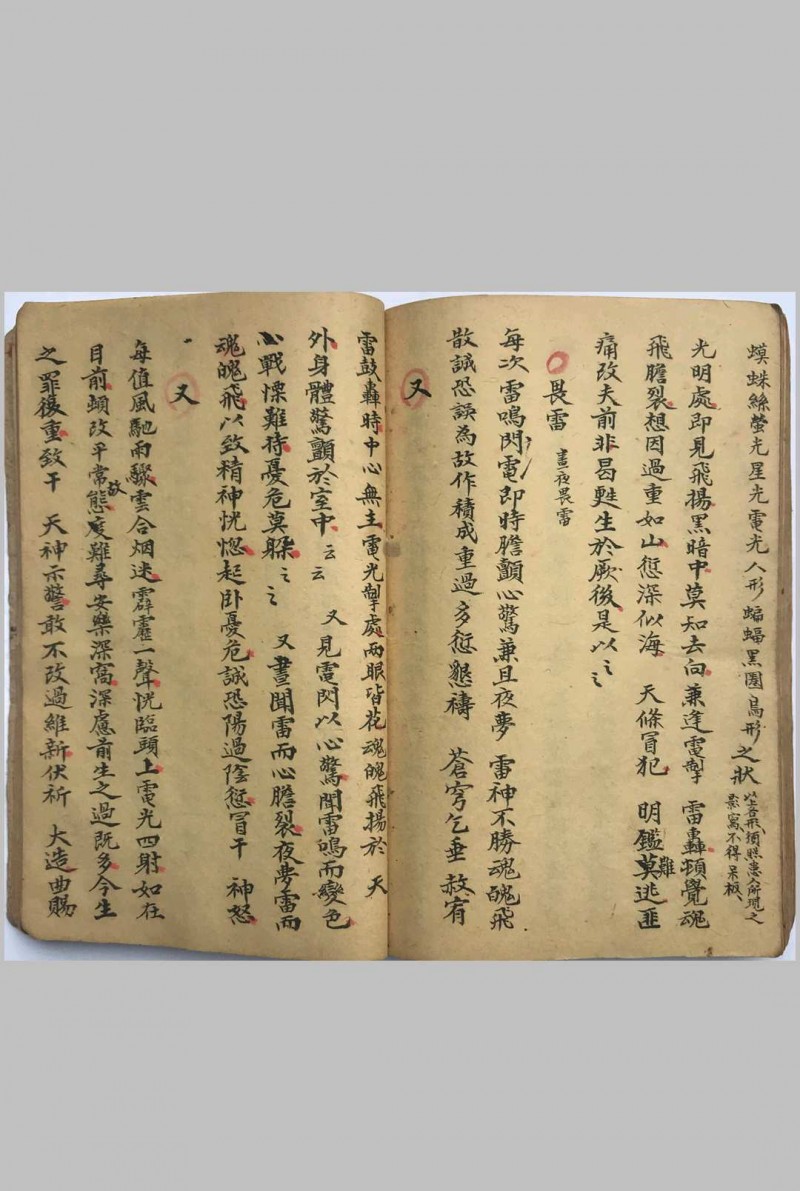 蟆蛛絲螢光星光電光人形蝙蝠黑團鳥形之狀以上各形須照患人所現之
影寫不得呆板
光明處即見飛揚黑暗中莫知去向兼逢電掣 雷轟頓覺魂
飛膽裂想因過重如山愆深似海 天條冒犯 明鑑難逃匪
痛改夫前非曷甦生於厥後是以之之
畏雷 晝夜畏雷
每次雷鳴閃電即時膽顫心驚兼且夜夢 雷神不勝魂魄飛
散誠恐誤為故作積成重過多愆懇禱 蒼穹乞垂赦宥
又
雷鼓轟時中心無主電光掣處兩眼皆花魂魄飛揚於 天
外身體驚顫於室中云云 又見電閃以心驚聞雷鳴而變色
心戰慄難待憂危莫躲之之 又晝聞雷而心膽裂夜夢雷而
魂魄飛以致精神恍惚起卧憂危誠恐陽過陰愆冒干 神怒
又
每值風馳雨驟雲合烟迷霹靂一聲恍臨頭上電光四射如在
目前頓改平常故態度難尋安樂深窩深慮前生之過既多今生
之罪復重致干 天神示警敢不改過維新伏祈 大造曲賜